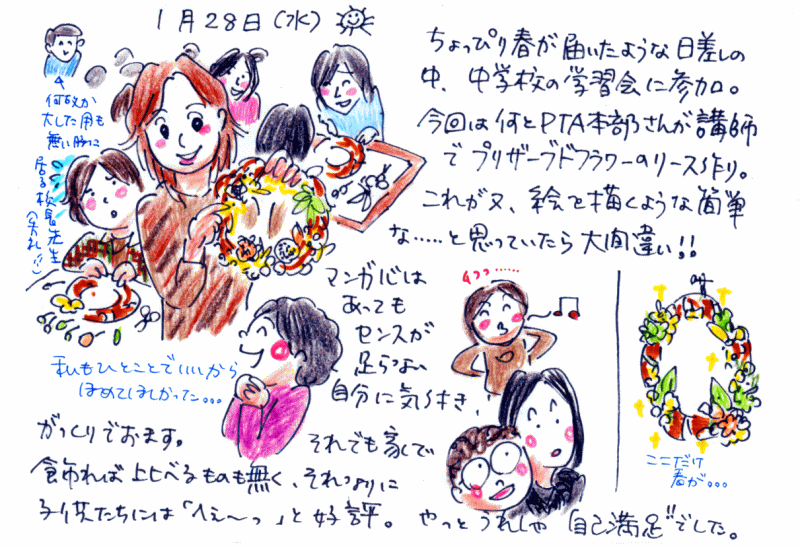 1月28日(水)
ちょっぴり春が届いたような日差しの
中、中学校の学習会に参加。
今回は何とPTA本部さんが講師
でプリザーブドフラワーのリース作り。
これが又、絵を描くような簡単
な……と思っていたら大間違い!!
何故か
大した用も
無い所に
居る校長先生
(失礼!!)
マンガ心は
あっても
センスが
足らない
自分に気付き、
がっくりでおます。
私もひとことでいいから
ほめてほしかった...
それでも家で
飾れば上比べるものも無く、それなりに
子供たちには「へぇ〜っ」と好評。やっとうれしや"自己満足"でした。
ここだけ
春が...